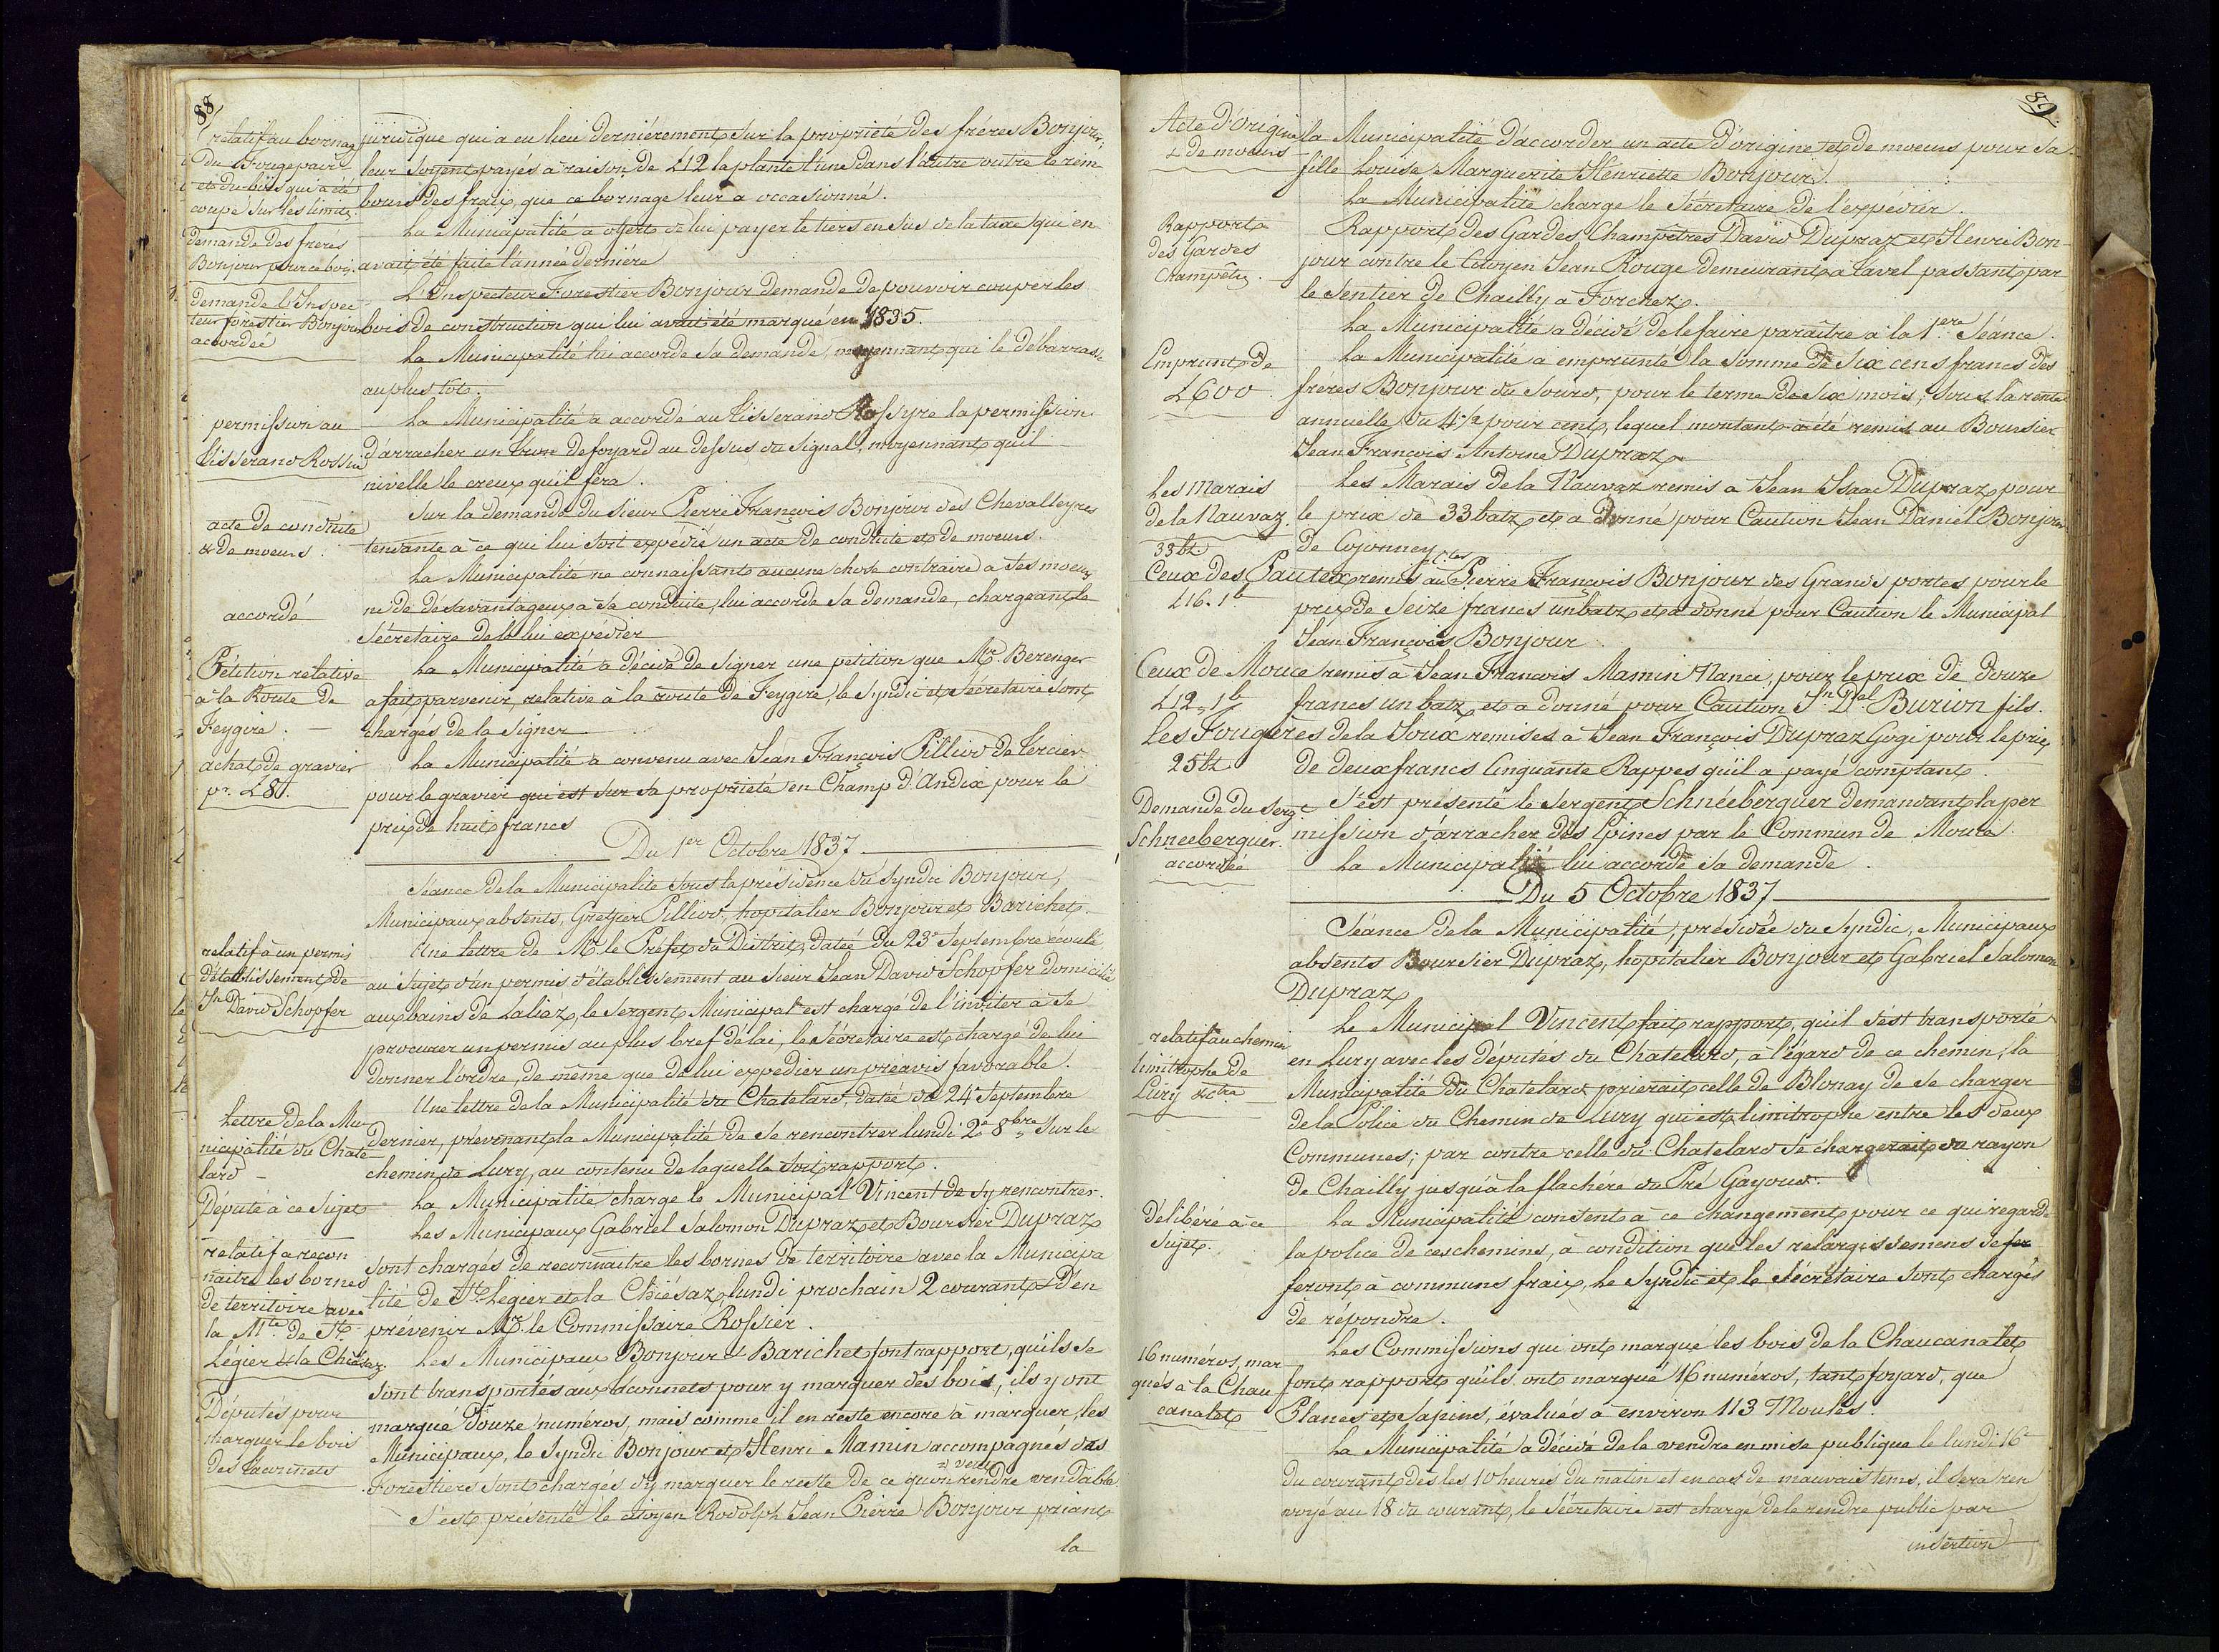 88
relatif au bornag
du Fougepaire
et du bois qui a été
coupé sur les limit.
demande des frères
Bonjour pour ce bois.
demande l'Inspec
teur forestier Bonjour
accordée
permission au
tisserand Rossire
acte de conduite
& de moeurs.
accordé
Pétition relative
à la Route de
Feygire.
achat de gravier
pr. L 8.
relatif à un permis
d'établissement de
Jn David Schopfer
Lettre de la Mu
nicipalité du Chate
lard
Député à ce sujet
relatif a recon
naitre les bornes
de territoire avec
la Mté de St
Légier & la Chiésaz.
Députés pour
marquer le bois
des Jaccannets
juridique qui a eu lieu dernièrement sur la propriété des frères Bonjour,
leur soyent payés a raison de L 12 la plante l'une dans l'autre outre le rem
bours des fraix, que ce bornage leur a occasionné.
La Municipalité a offert de lui payer le tiers en sus de la taxe qui en
avait été faite l'année dernière
L'Inspecteur Forestier Bonjour demande de pouvoir couper les
bois de construction qui lui avait été marqué en 1835.
La Municipalité lui accorde sa demande, moyennant qui le débarrasse
au plus tot.
La Municipalité a accordé au tisserand Rossyre la permission
d'arracher un tronc de foyard au dessus du Signal, moyennant quil
nivelle le creux qu'il fera.
Sur la demande du Sieur Pierre François Bonjour des Chevalleyres
tendante à ce qui lui soit expédié un acte de conduite et de moeurs.
La Municipalité ne connaissant aucune chose contraire a ses moeurs
ni de désavantageux a sa conduite, lui accorde sa demande, chargeant le
Sécretaire de le lui expédier
La Municipalité a décidé de signer une pétition que Mr. Berenger
a fait parvenir, relative à la route de Feygire, le Syndic et Sécretaire sont
chargés de la signer
La Municipalité a convenu avec Jean François Pilliod de Tercier
pour le gravier qui est sur sa propriété en Champ d'Andix pour le
prix de huit francs
Du 1er Octobre 1837
Séance de la Municipalité sous la présidence du Syndic Bonjour,
Municipaux absents, Greffier Pilliod, hopitalier Bonjour et Barichet.
Une lettre de Mr le Préfet du District, datée du 23e Septembre écoulé
au sujet d'un permis d'établissement au Sieur Jean David Schopfer domicilié
aux bains de Laliaz, le Sergent Municipal est chargé de l'inviter à se
procurer un permis au plus bref délai, le Sécretaire est chargé de lui
donner l'ordre, de même que de lui expédier un préavis favorable.
Une lettre de la Municipalité du Chatelard, datée du 24 Septembre
dernier, prévenant la Municipalité de se rencontrer lundi 2e 8bre sur le
chemin de Lury, au contenu de laquelle soit rapport.
La Municipalité charge le Municipal Vincent de s'y rencontrer.
Les Municipaux Gabriel Salomon Dupraz et Boursier Dupraz
sont chargés de reconnaitre les bornes de territoire avec la Municipa
lité de St. Legier et la Chiésaz lundi prochain 2 courant & d'en
prévenir Mr. le Commissaire Rossier.
Les Municipaux Bonjour & Barichet font rapport, qu'ils se
sont transportés aux Jaccannets pour y marquer des bois, ils y ont
marqué douze numéros, mais comme il en reste encore à marquer, les
Municipaux, le Syndic Bonjour et Henri Mamin accompagnés des
Forestiers sont chargés d'y marquer le reste de ce qu'on rendre vendable.
S'est présenté le citoyen Rodolph Jean Pierre Bonjour priant
la
89
Acte d'Origine
& de moeurs
Rapport
des Gardes
Champêtr.
Emprunt de
L600
Les Marais
de la Nauvaz.
33 bz.
Ceux des Pautex
L16. 1b
Ceux de Mouce
L12 " 1b
Les Fougères
25 bz
Demande du Sergt
Schneeberguer.
accordée
relatif au chemin
limitrophe de
Lury &ctra
Délibéré à ce
sujet.
16 numéros, mar
qués à la Chau
canalet
la Municipalité d'accorder un acte d'origine et de moeurs pour sa
fille Louise Marguerite Henriette Bonjour.
La Municipalité charge le Sécretaire de l'expédier.
Rapport des Gardes Champêtres David Dupraz et Henri Bon
jour contre le Citoyen Jean Rouge demeurant a Tavel passant par
le sentier de Chailly a Forchez.
La Municipalité a décidé de le faire paraitre a la 1ere Séance.
La Municipalité a emprunté la somme de Six cens francs des
frères Bonjour du Sourd, pour le terme de Six mois, sous la rente
annuelle du 4 1/2 pour cent, lequel montant a été remis au Boursier
Jean François Antoine Dupraz
Les Marais de la Nauvaz remis a Jean Isaac Dupraz pour
le prix de 33 batz et a donné pour Caution Jean Daniel Bonjour
de Cojonney
remis au Pierre François Bonjour des Grands portes pour le
prix de Seize francs un batz et a donné pour Caution le Municipal
Jean François Bonjour
remis à Jean Francois Mamin Nanci, pour le prix de Douze
francs un batz et a donné pour Caution Jn Del Burion fils.
de la Joux remises à Jean François Dupraz Gogi pour le prix
de deux francs Cinquante Rappes qu'il a payé comptant.
S'est présenté le Sergent Schnéeberguer demandant la per
mission d'arracher des Epines par le Commun de Mouce.
La Municipalité lui accorde sa demande.
Du 5 Octobre 1837
Séance de la Municipalité, présidée du Syndic, Municipaux
absents Boursier Dupraz, hopitalier Bonjour et Gabriel Salomon
Dupraz
Le Municipal Vincent fait rapport, qu'il s'est transporté
en Lury avec les députés du Chatelard, à l'égard de ce chemin; la
Municipalité du Chatelard prierait celle de Blonay de se charger
de la Police du Chemin de Lury qui est limitrophe entre les deux
Communes; par contre celle du Chatelard se chargerait du rayon
de Chailly jusqu'à la flachére du Pré Gayoud.
La Municipalité consent à ce changement pour ce qui regarde
la police de ces chemins, à condition que les relargissemens se fer
feront à communs fraix, le Syndic et le Sécretaire sont chargés
de répondre.
Les Commissions qui ont marqué les bois de la Chaucanalet
font rapport qu'ils ont marqué 16 numéros, tant foyard, que
Planes et Sapins, évalués à environ 113 Moules.
La Municipalité a décidé de le vendre en mise publique le lundi 16e
du courant dès les 10 heures du matin et en cas de mauvais tems, il sera ren
voyé au 18 du courant, le Sécretaire est chargé de le rendre public par
insertion